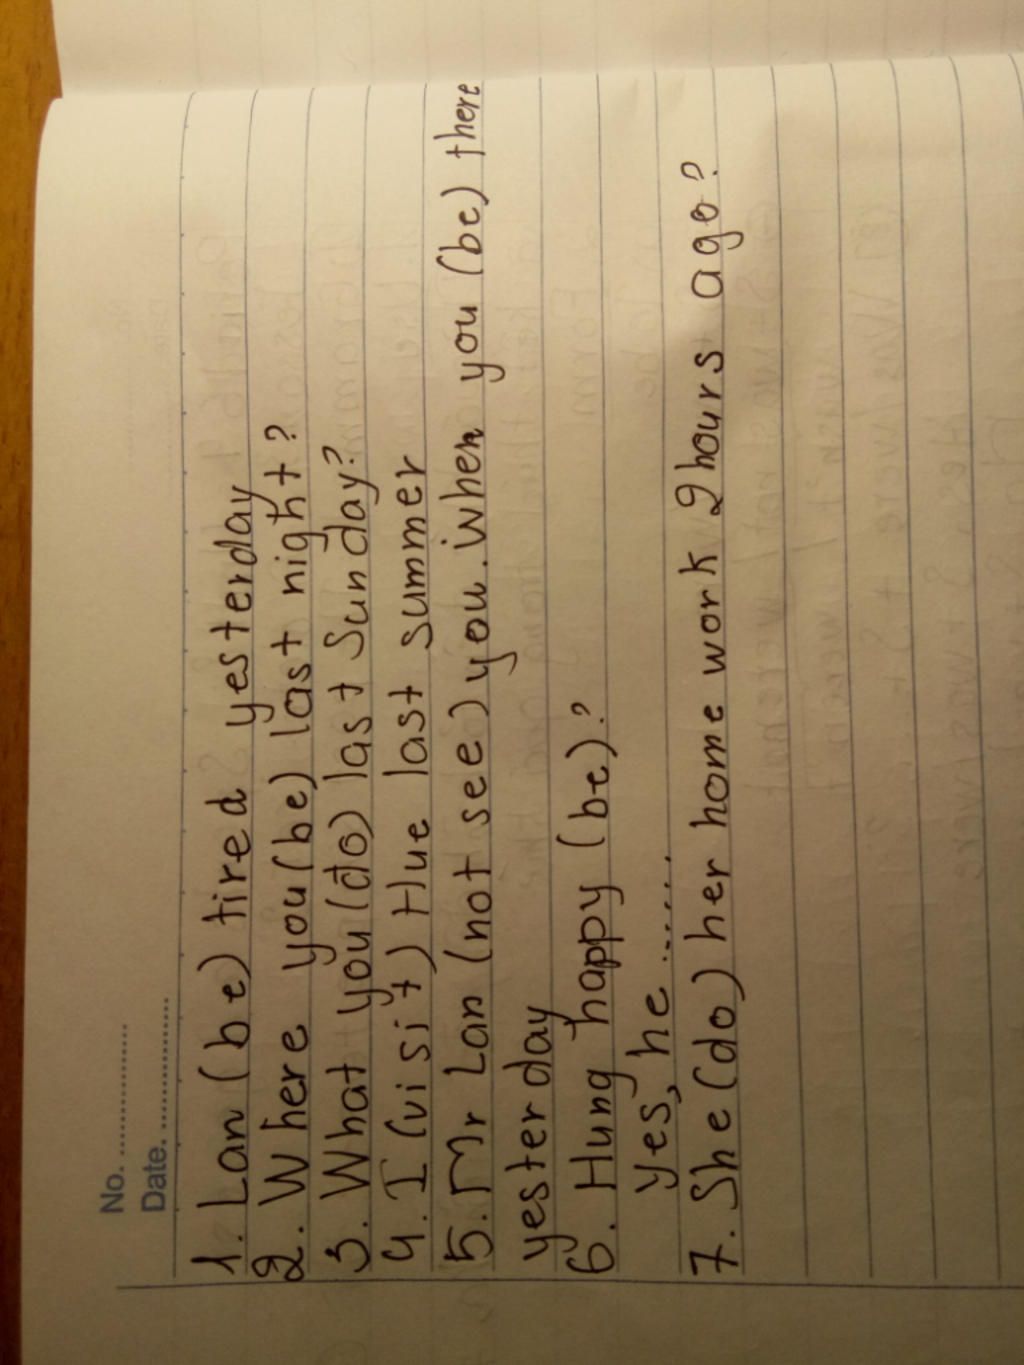 No. ....................
Date. ....................
1. Lan (be) tired yesterday
2. Where you (be) last night?
3. What you (do) last Sunday?
4. I (visit) Hue last summer
5. Mr Lan (not see) you. When you (be) there
yesterday
6. Hung happy (be)?
Yes, he ......
7. She (do) her home work 2 hours ago?